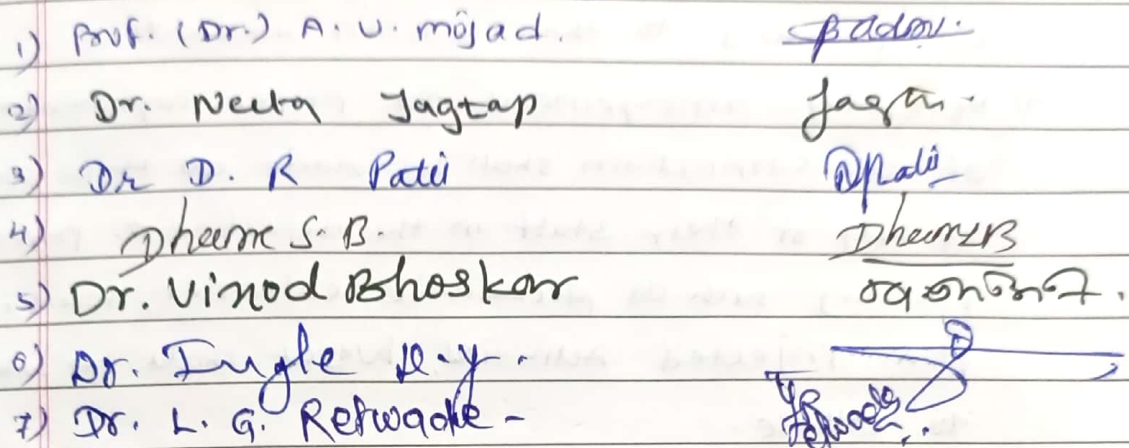 1) Prof. (Dr.) A. U. Mojad.
2) Dr. Neeta Jagtap Jagtap.
3) Dr D. R Patil DRPatil
4) Dheeme S. B. DhemeSB
5) Dr. Vinod Bhoskar
6) Dr. Ingle D. y
7) Dr. L. G. Retwade -